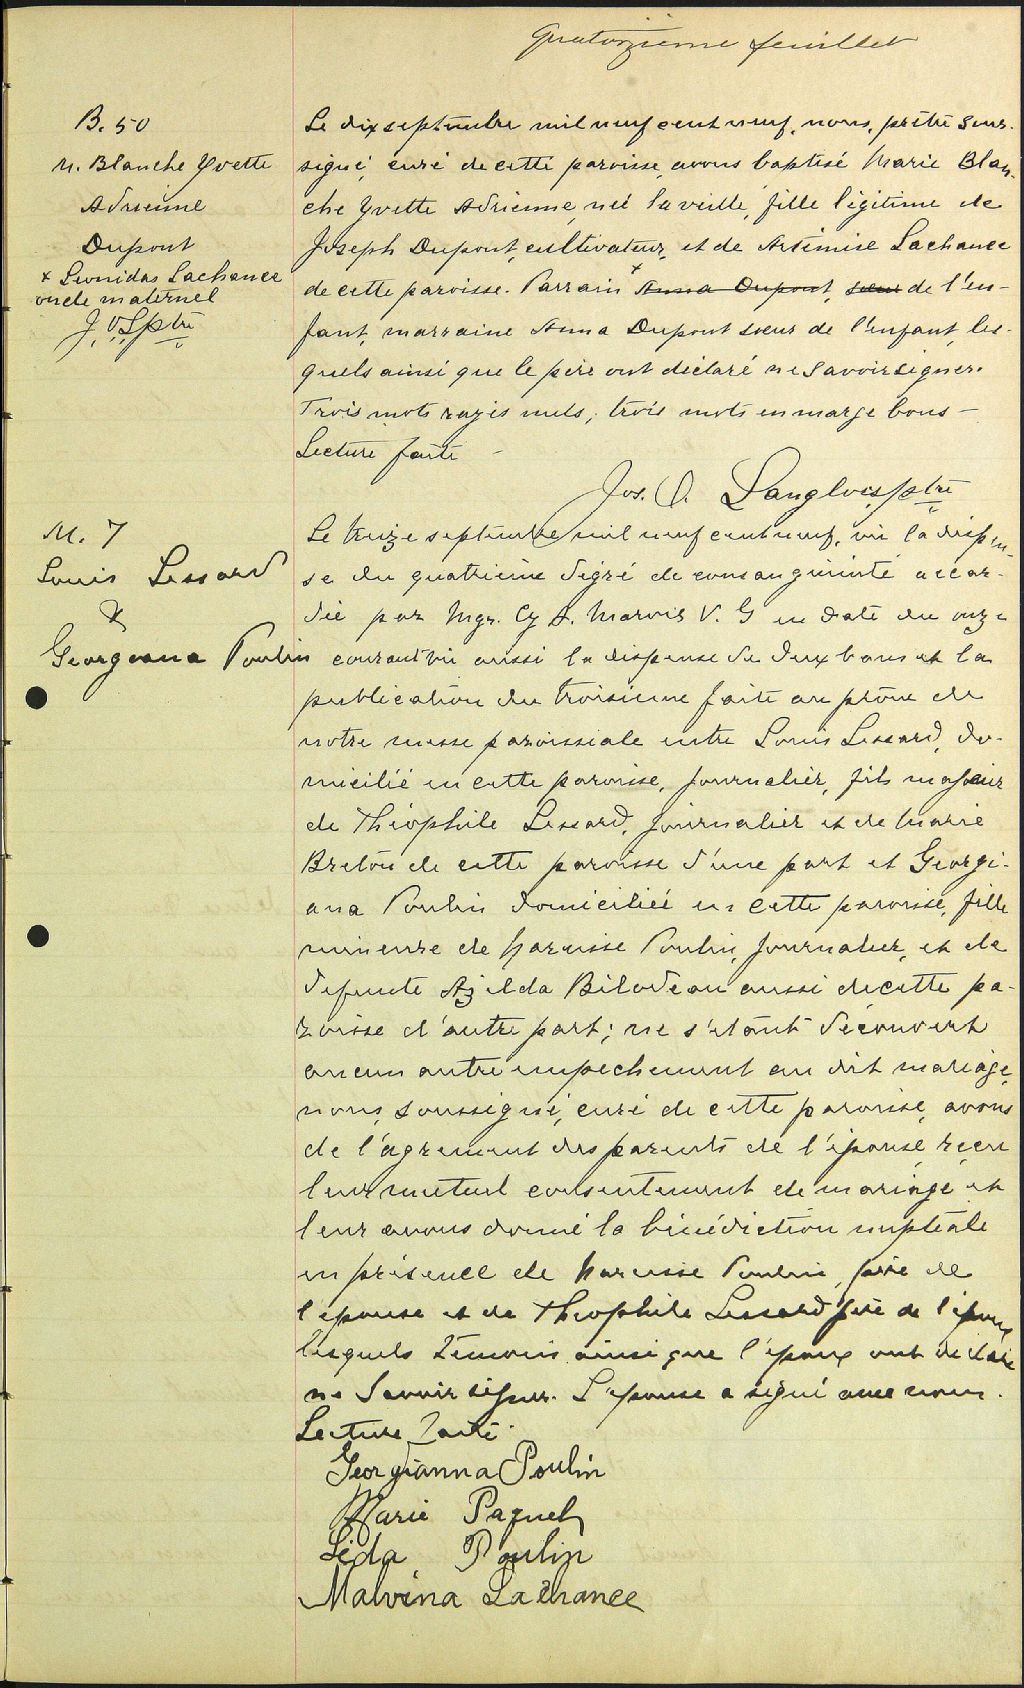 Quatorzieme feuillet
B. 50
M. Blanche Yvette
Adrienne
Dupont
x Leonidas Lachance
oncle maternel
J. O. L. ptre
Le dix septembre mil neuf cent neuf, nous, prêtre sous-
signé, curé de cette paroisse, avons baptisé Marie Blan-
che Yvette Adrienne, née la veille, fille légitime de
Joseph Dupont, cultivateur, et de Artémise Lachance
de cette paroisse. Parrain x Anna Dupont, sœur de l'en-
fant, marraine Anna Dupont sœur de l'enfant, les-
quels ainsi que le père ont déclaré ne savoir signer.
Trois mots rayés nuls, trois mots en marge bons -
Lecture faite -
Jos. O. Langlois, ptre
M. 7
Louis Lessard
&
Georgeana Poulin
Le treize septembre mil neuf cent neuf, vu la dispen-
se du quatrieme degré de consanguinité accor-
dée par Mgr. Cy A. Marois V. G en date du onze
courant vu aussi la dispense de deux bans et la
publication du troisieme faite au prône de
notre messe paroissiale entre Louis Lessard, do-
micilié en cette paroisse, journalier, fils majeur
de Théophile Lessard, journalier et de Marie
Breton de cette paroisse d'une part et Georgi-
ana Poulin domiciliée en cette paroisse, fille
mineure de Narcisse Poulin, journalier, et de
defunte Azelda Bilodeau aussi de cette pa-
roisse d'autre part; ne s'etant découvert
aucun autre empechement au dit mariage,
nous, soussigné, curé de cette paroisse, avons
de l'agrement des parents de l'épouse, reçu
leur mutuel consentement de mariage et
leur avons donné la bénédiction nuptiale
en présence de Narcisse Poulin, père de
l'épouse et de Théophile Lessard père de l'époux
lesquels témoins ainsi que l'époux ont déclaré
ne savoir signer. L'épouse a signé avec nous.
Lecture faite.
Georgianna Poulin
Marie Paquet
Léda Poulin
Malvina Lachance